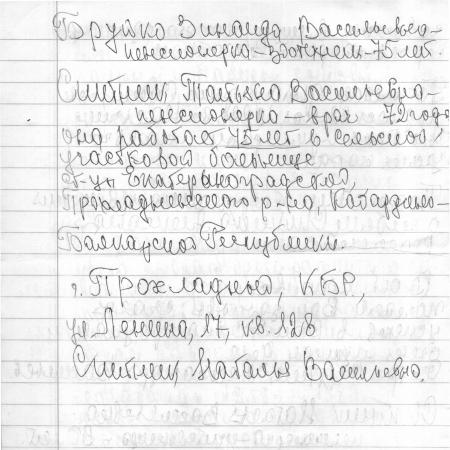 Брушко Зинаида Васильевна-
пенсионерка-зоотехник-75 лет.
Смитник Татьяна Васильевна-
пенсионерка-врач 72 года
она работает 45 лет в сельской
участковой больнице
ст-цы Екатериноградской,
Прохладненского р-на, Кабардино-
Балкарской Республики.
г. Прохладный, КБР,
ул Ленина, 17, кв. 128
Смитник Наталья Васильевна.